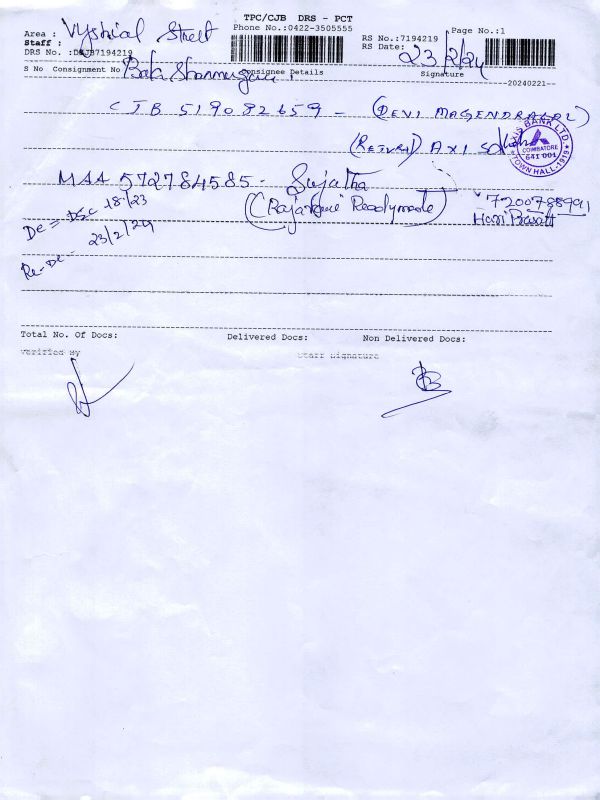 TPC/CJB DRS - PCT
Area : Vyshial Street
Phone No.:0422-3505555
RS No.:7194219
Page No.:1
Staff :
RS Date: 23/2/24
DRS No. :DCJB7194219
S No Consignment No Consignee Details Signature
Bala Shanmugam
20240221
CJB 519082659 - (DEVI
(Return) AXI
AXIS BANK LTD.
COIMBATORE
641 001
TOWN HALL-1919
MAA 572784585- Sujatha
(Rajarani Readymade)
7200788991
Hari Prasatt
De = Dsc 18/23
Re-De - 23/2/24
Total No. Of Docs: Delivered Docs: Non Delivered Docs:
Verified By Staff Signature